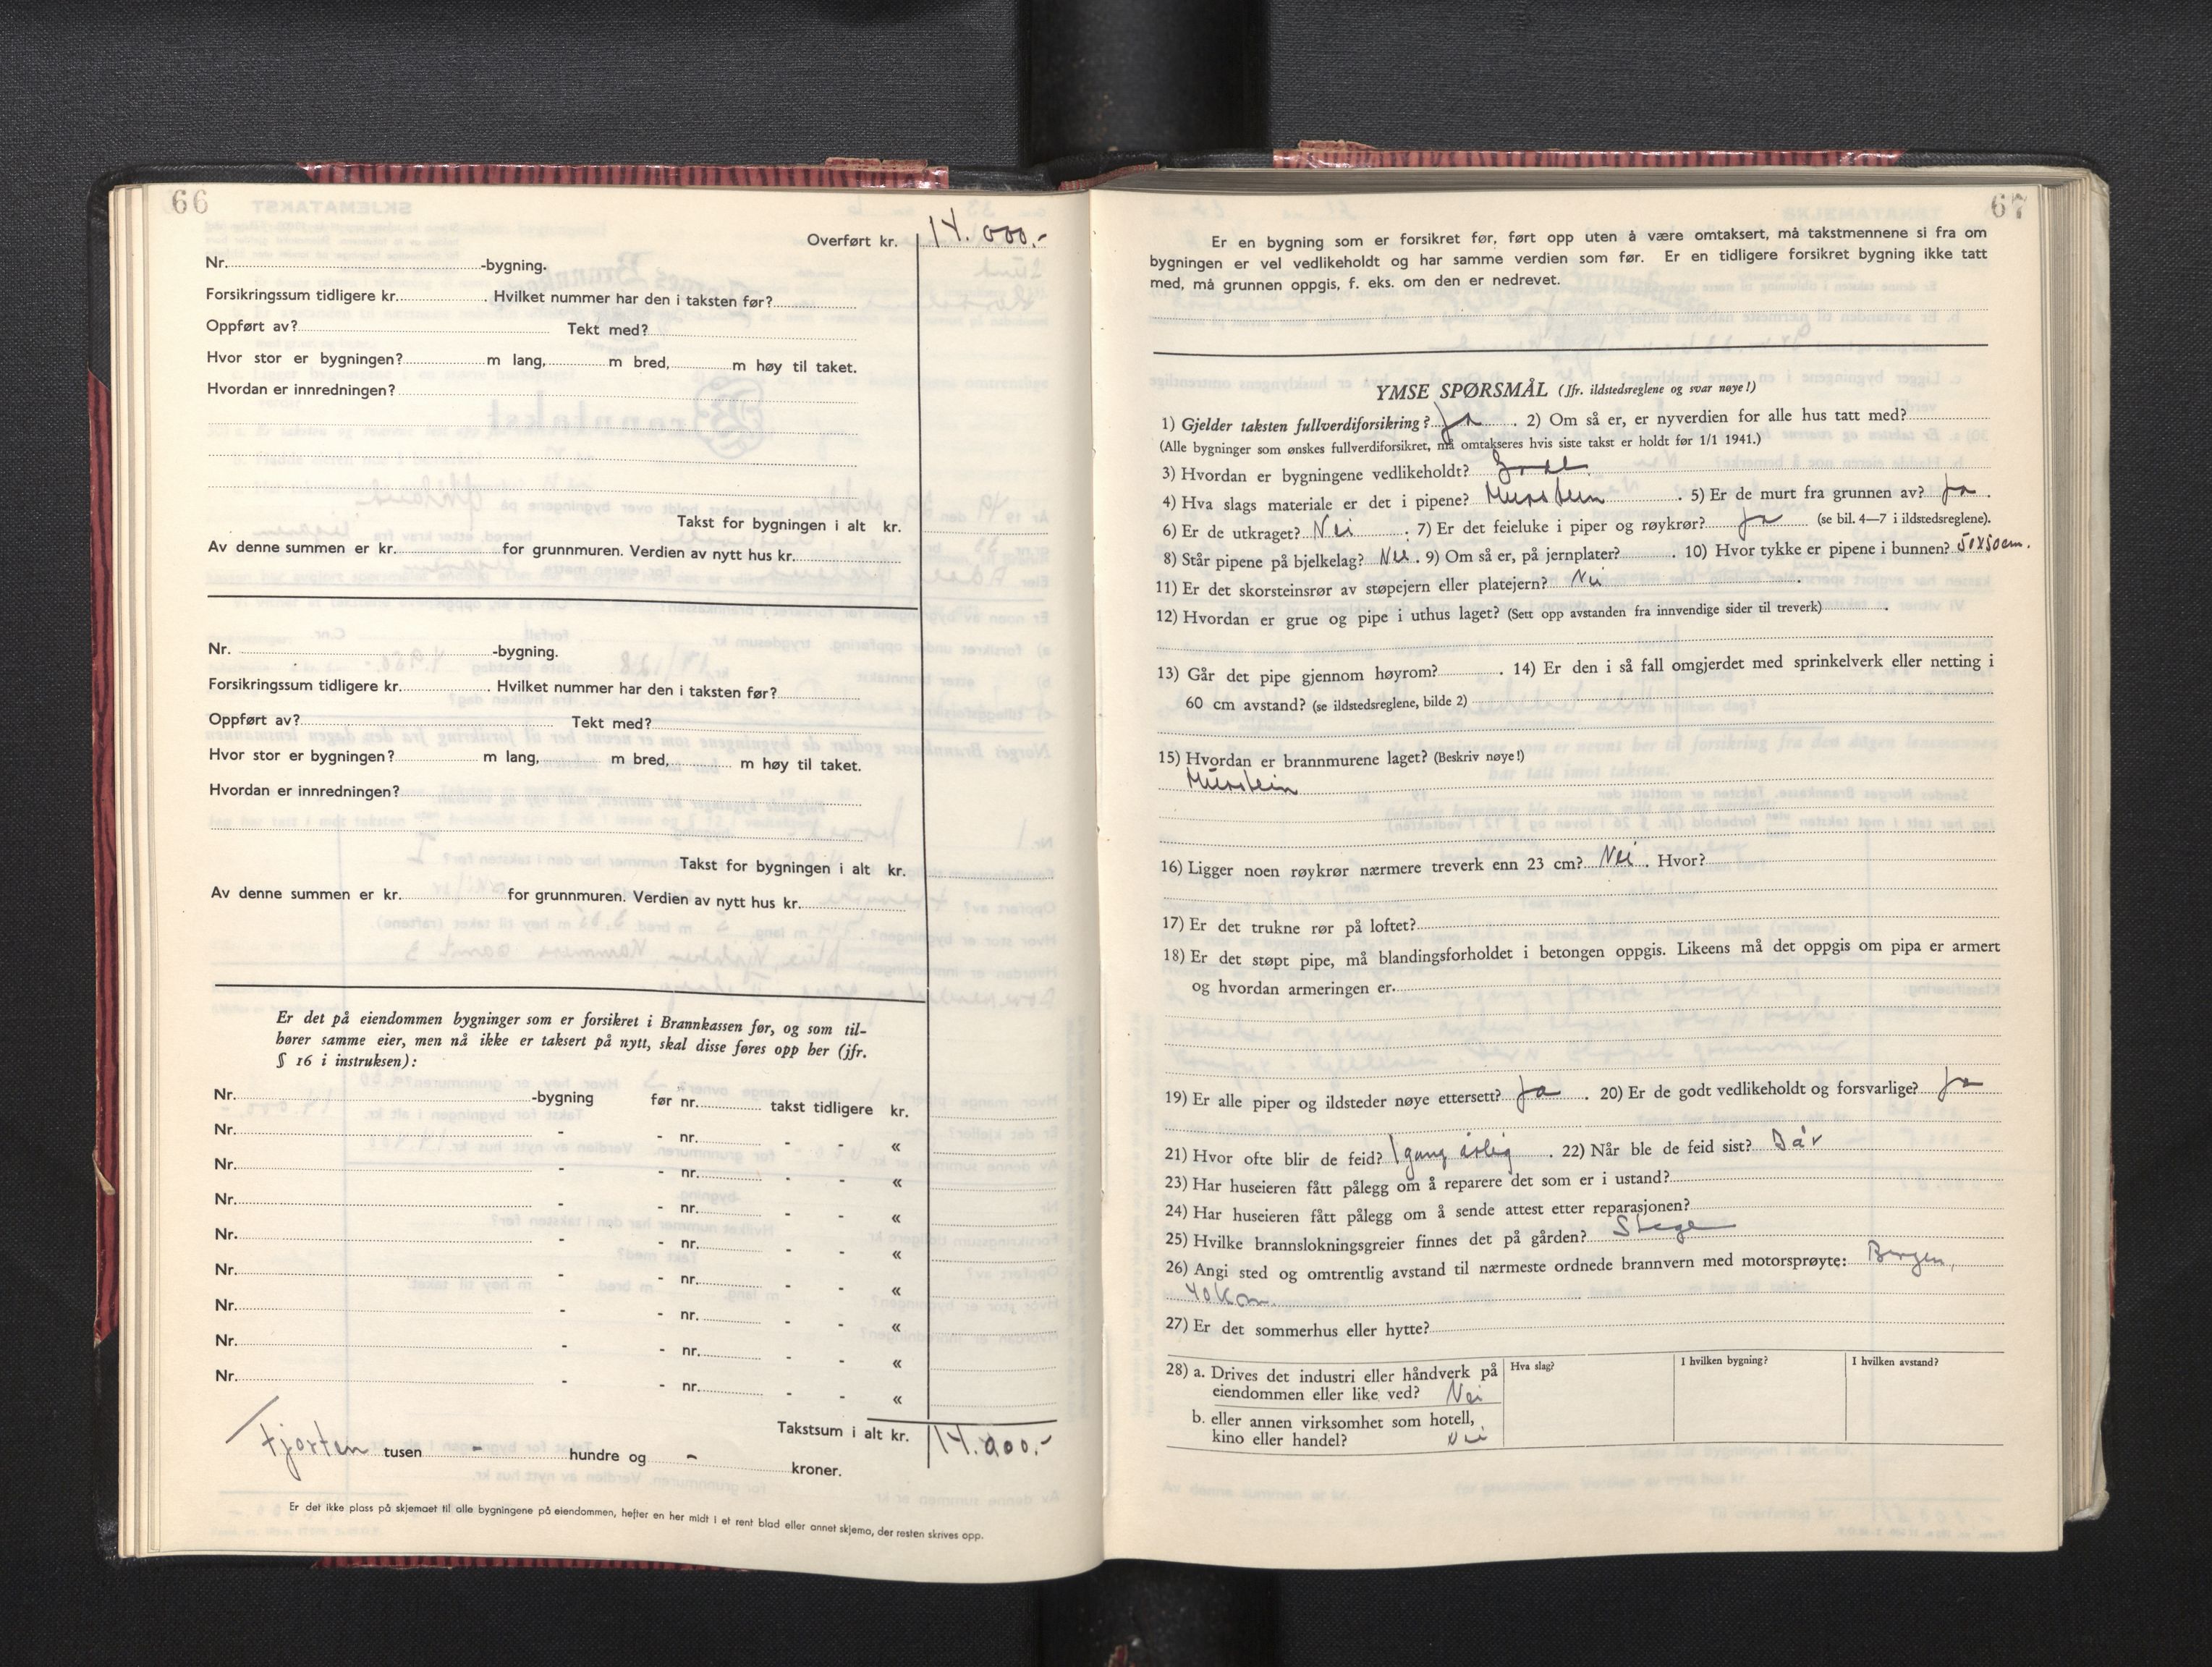 66
Overført kr. 14.000.-
Nr. -bygning.
Forsikringssum tidligere kr. . Hvilket nummer har den i taksten før?
Oppført av? Tekt med?
Hvor stor er bygningen? m lang, m bred, m høy til taket.
Hvordan er innredningen?
Takst for bygningen i alt kr.
Av denne summen er kr. for grunnmuren. Verdien av nytt hus kr.
Nr. -bygning.
Forsikringssum tidligere kr. . Hvilket nummer har den i taksten før?
Oppført av? Tekt med?
Hvor stor er bygningen? m lang, m bred, m høy til taket.
Hvordan er innredningen?
Takst for bygningen i alt kr.
Av denne summen er kr. for grunnmuren. Verdien av nytt hus kr.
Er det på eiendommen bygninger som er forsikret i Brannkassen før, og som til-
hører samme eier, men nå ikke er taksert på nytt, skal disse føres opp her (jfr.
§ 16 i instruksen):
Nr. -bygning før nr. takst tidligere kr.
Nr. - - nr. - - «
Nr. - - nr. - - «
Nr. - - nr. - - «
Nr. - - nr. - - «
Nr. - - nr. - - «
Nr. - - nr. - - «
Nr. - - nr. - - «
Nr. - - nr. - - «
Takstsum i alt kr. 14.000.-
Fjorten tusen - hundre og - kroner.
Er det ikke plass på skjemaet til alle bygningene på eiendommen, hefter en her midt i et rent blad eller annet skjema, der resten skrives opp.
67
Er en bygning som er forsikret før, ført opp uten å være omtaksert, må takstmennene si fra om
bygningen er vel vedlikeholdt og har samme verdien som før. Er en tidligere forsikret bygning ikke tatt
med, må grunnen oppgis, f. eks. om den er nedrevet.
YMSE SPØRSMÅL (Jfr. ildstedsreglene og svar nøye!)
1) Gjelder taksten fullverdiforsikring? Ja . 2) Om så er, er nyverdien for alle hus tatt med?
(Alle bygninger som ønskes fullverdiforsikret, må omtakseres hvis siste takst er holdt før 1/1 1941.)
3) Hvordan er bygningene vedlikeholdt? Godt
4) Hva slags materiale er det i pipene? Murstein . 5) Er de murt fra grunnen av? Ja .
6) Er de utkraget? Nei . 7) Er det feieluke i piper og røykrør? Ja (se bil. 4—7 i ildstedsreglene).
8) Står pipene på bjelkelag? Nei . 9) Om så er, på jernplater? . 10) Hvor tykke er pipene i bunnen? 50x50 cm.
11) Er det skorsteinsrør av støpejern eller platejern? Nei .
12) Hvordan er grue og pipe i uthus laget? (Sett opp avstanden fra innvendige sider til treverk) .
13) Går det pipe gjennom høyrom? . 14) Er den i så fall omgjerdet med sprinkelverk eller netting i
60 cm avstand? (se ildstedsreglene, bilde 2)
15) Hvordan er brannmurene laget? (Beskriv nøye!)
Murstein
16) Ligger noen røykrør nærmere treverk enn 23 cm? Nei . Hvor?
17) Er det trukne rør på loftet?
18) Er det støpt pipe, må blandingsforholdet i betongen oppgis. Likeens må det oppgis om pipa er armert
og hvordan armeringen er.
19) Er alle piper og ildsteder nøye ettersett? Ja . 20) Er de godt vedlikeholdt og forsvarlige? Ja
21) Hvor ofte blir de feid? 1 gang årlig . 22) Når ble de feid sist? I år
23) Har huseieren fått pålegg om å reparere det som er i ustand?
24) Har huseieren fått pålegg om å sende attest etter reparasjonen?
25) Hvilke brannslokningsgreier finnes det på gården? Stege
26) Angi sted og omtrentlig avstand til nærmeste ordnede brannvern med motorsprøyte: Bergen,
40 km.
27) Er det sommerhus eller hytte?
28) a. Drives det industri eller håndverk på Hva slag? I hvilken bygning? I hvilken avstand?
eiendommen eller like ved? Nei
b. eller annen virksomhet som hotell,
kino eller handel? Nei